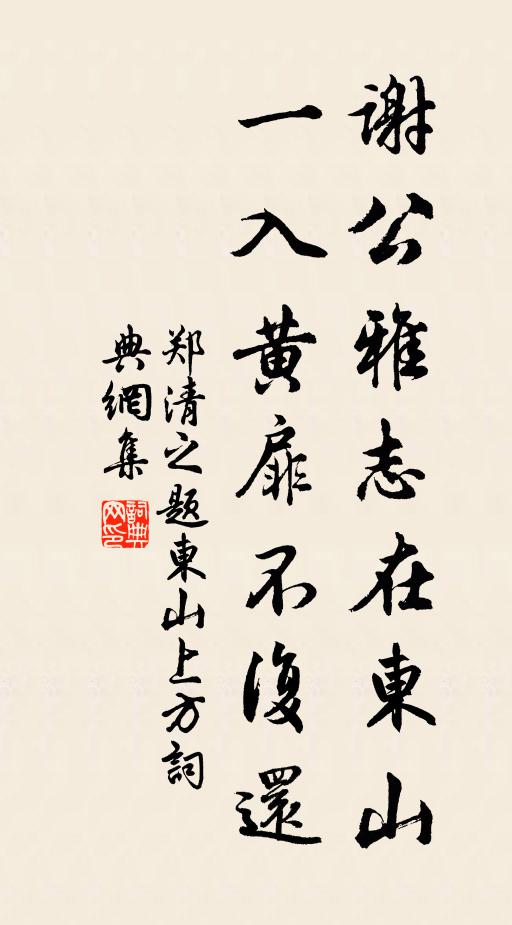 谢公雅志在東山
一入黄扉不復還
郑清之题東山上方詞
典網集
詞典
网印